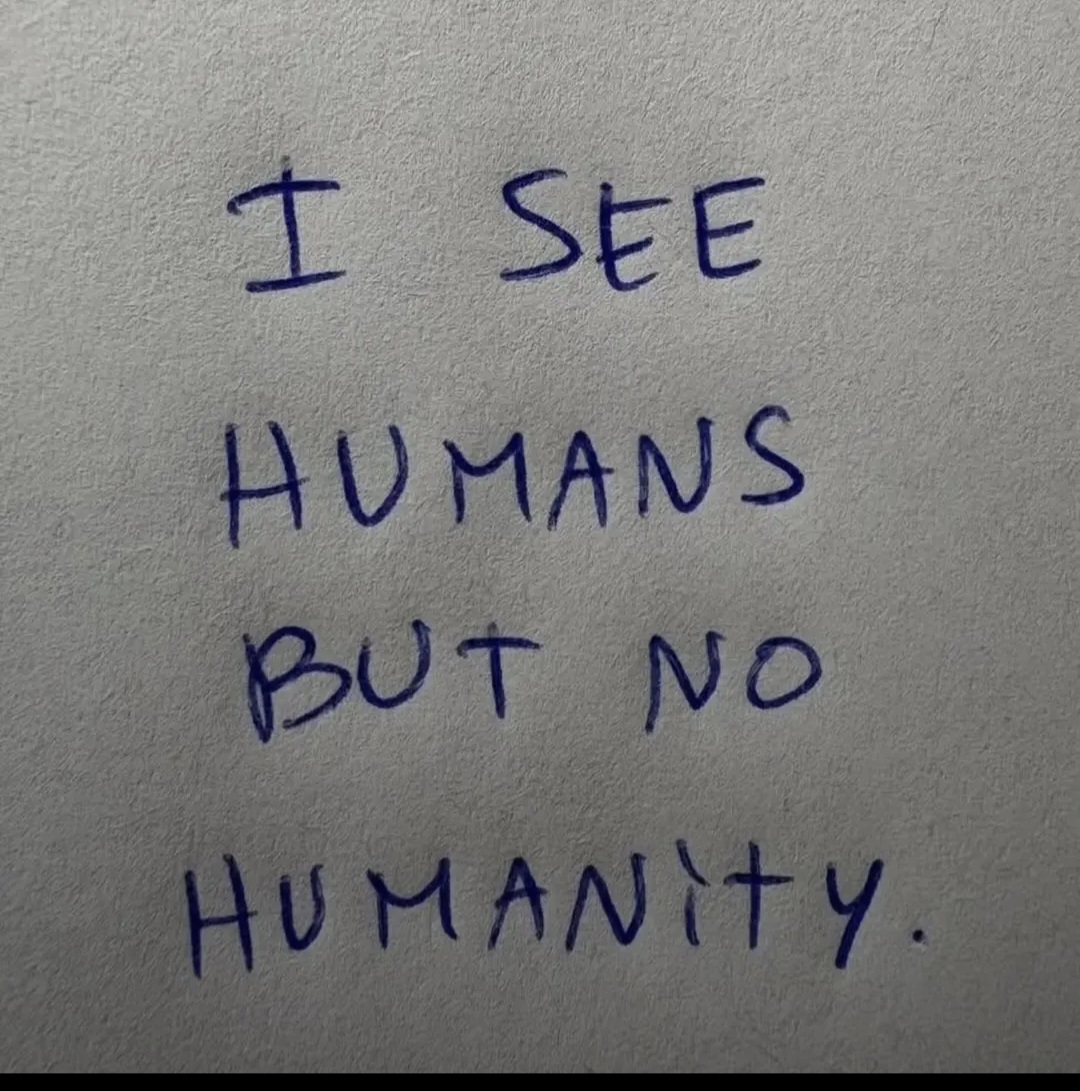 I SEE
HUMANS
BUT NO
HUMANiTY.